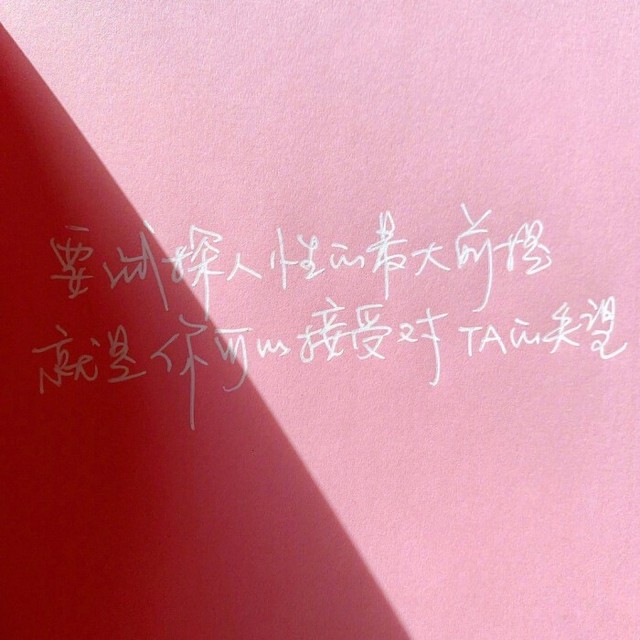 要试探人性的最大前提
就是你可以接受对TA的失望